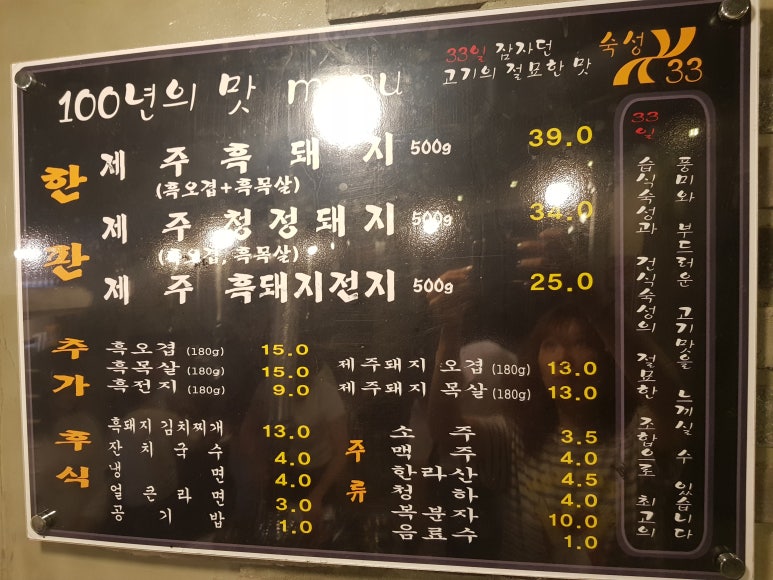 100년의 맛 menu
33일 잠자던
고기의 절묘한 맛
숙성
33
한판
제주흑돼지 500g 39.0
(흑오겹+흑목살)
제주청정돼지 500g 34.0
(흑오겹, 흑목살)
제주 흑돼지전지 500g 25.0
추가
흑오겹 (180g) 15.0
흑목살 (180g) 15.0
흑전지 (180g) 9.0
제주돼지 오겹 (180g) 13.0
제주돼지 목살 (180g) 13.0
후식
흑돼지김치찌개 13.0
잔치국수 4.0
냉면 4.0
얼큰라면 3.0
공기밥 1.0
주류
소주 3.5
맥주 4.0
한라산 4.5
청하 4.0
복분자 10.0
음료수 1.0
33일 습식숙성과 건식숙성의 절묘한 조합으로 최고의
풍미와 부드러운 고기맛을 느끼실 수 있습니다